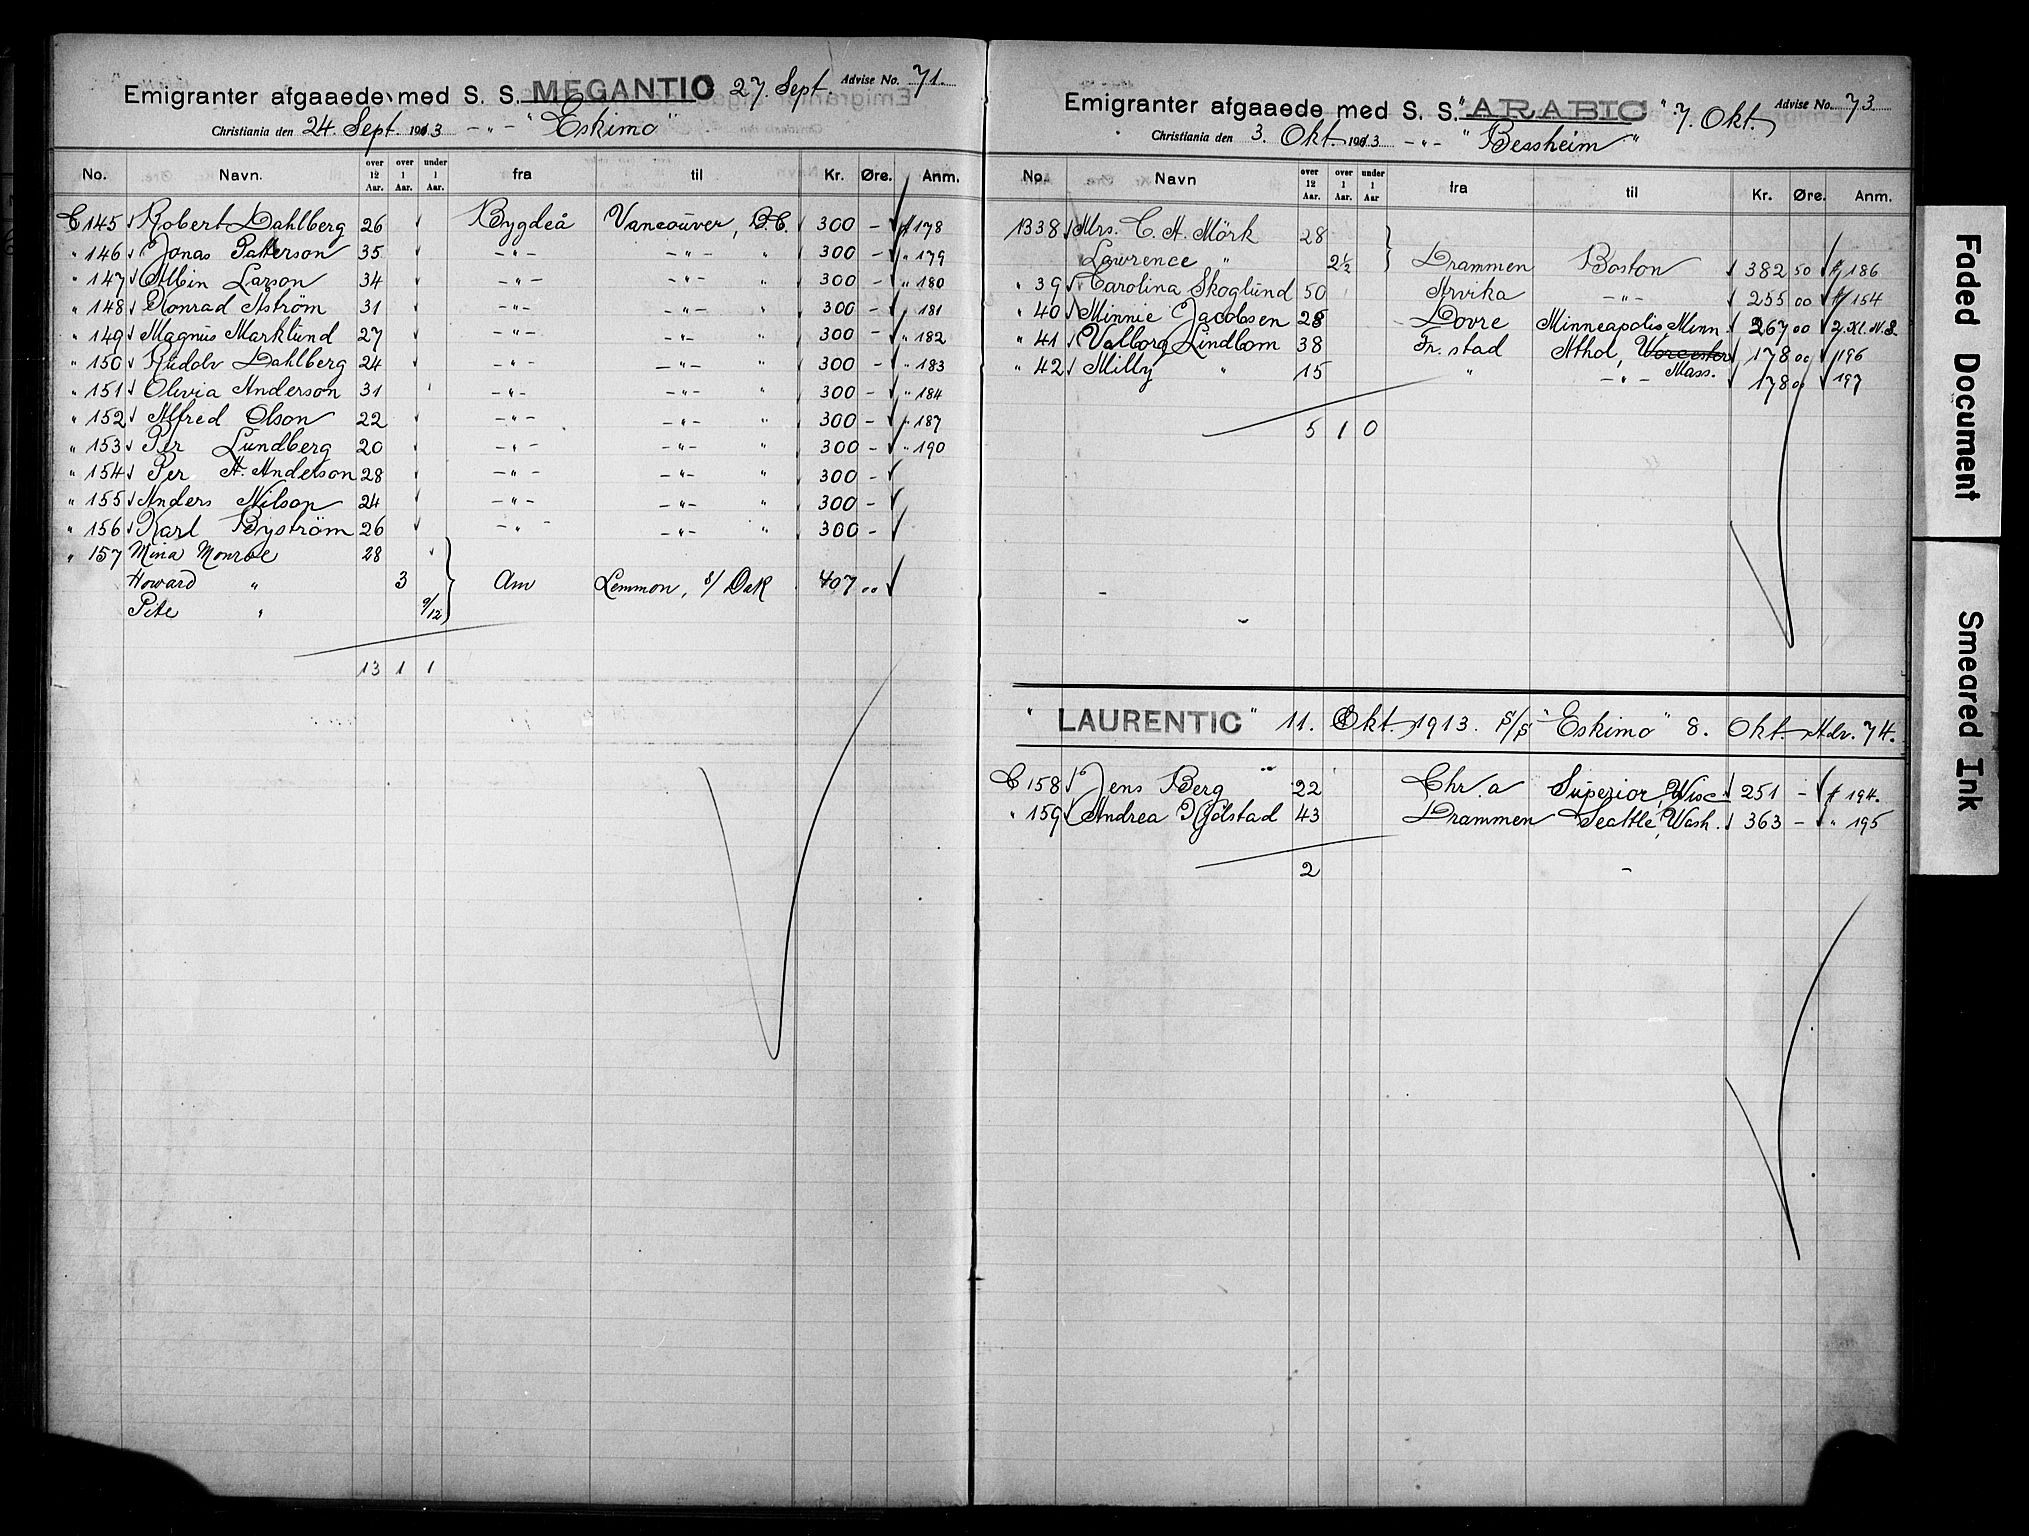 Emigranter afgaaede med S. S. MEGANTIC 27. Sept. Advise No. 71.
Christiania den 24. Sept. 1913 - " - "Eskimo"
No. Navn. over 12 Aar. over 1 Aar. under 1 Aar. fra til Kr. Øre. Anm.
C 145 Robert Dahlberg 26 Bygdeå Vancouver, B.C. 300 - 178
" 146 Jonas Patterson 35 - " - - " - " 300 - " 179
" 147 Albin Larson 34 - " - - " - " 300 - " 180
" 148 Konrad Åström 31 - " - - " - " 300 - " 181
" 149 Magnus Marklund 27 - " - - " - " 300 - " 182
" 150 Rudolv Dahlberg 24 - " - - " - " 300 - " 183
" 151 Olivia Anderson 31 - " - - " - " 300 - " 184
" 152 Alfred Olson 22 - " - - " - " 300 - " 187
" 153 Per Lundberg 20 - " - - " - " 300 - " 190
" 154 Per A. Anderson 28 - " - - " - " 300 -
" 155 Anders Nilson 24 - " - - " - " 300 -
" 156 Karl Byström 26 - " - - " - " 300 -
" 157 Mina Monroe 28
Howard " 3 Am Lemmon, S/ Dak 407 00
Pite " 9/12
13 1 1
Emigranter afgaaede med S. S. "ARABIC" 7. Okt. Advise No. 73
Christiania den 3. Okt. 1913 - " - "Bessheim"
No. Navn over 12 Aar. over 1 Aar. under 1 Aar fra til Kr. Øre. Anm.
1338 Mrs. C. A. Mörk 28
Lawrence " 2½ Drammen Boston 382 50 186
" 39 Carolina Skoglund 50 Arvika - " - 255 00 154
" 40 Minnie Jacobsen 28 Dovre Minneapolis Minn. 267 00
" 41 Valborg Lindbom 38 Fr.stad Athol, Worcester 178 00 196
" 42 Milly " 15 " - " - Mass. 178 00 197
5 1 0
"LAURENTIC" 11. Okt. 1913. S/S "Eskimo" 8. Okt. Adv. 74.
C 158 Jens Berg 22 Chr.a Superior, Wisc. 251 - 194.
" 159 Andrea Kjölstad 43 Drammen Seattle, Wash. 363 - " 195
2
Faded Document
Smeared Ink